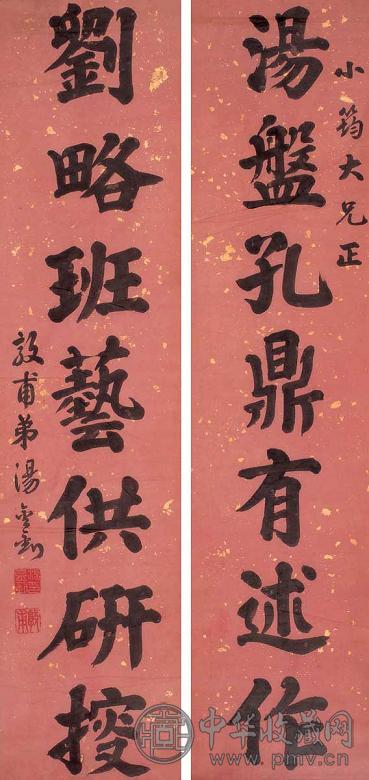 小筠大兄正
湯盤孔鼎有述作
劉略班藝供研控
敦甫弟湯金釗
中华收藏网
www.pmv.cn